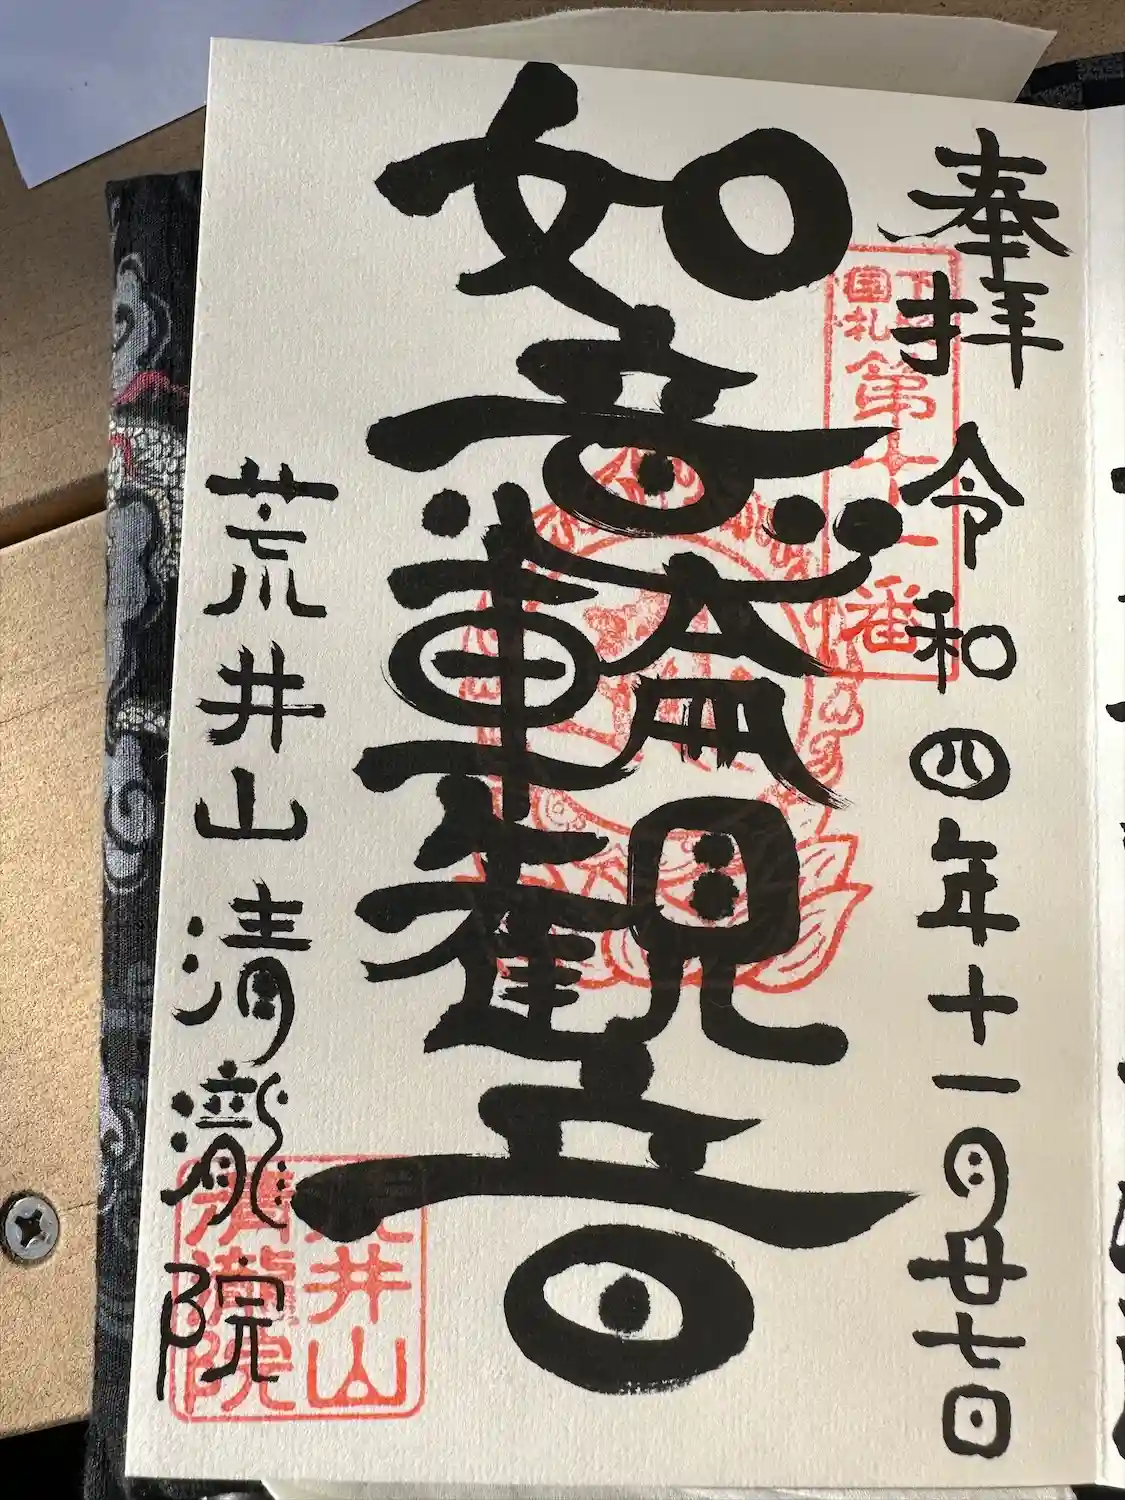 奉拝 令和四年十一月廿七日
第十一番
如意輪観音
荒井山清瀧院
荒井山
清瀧院